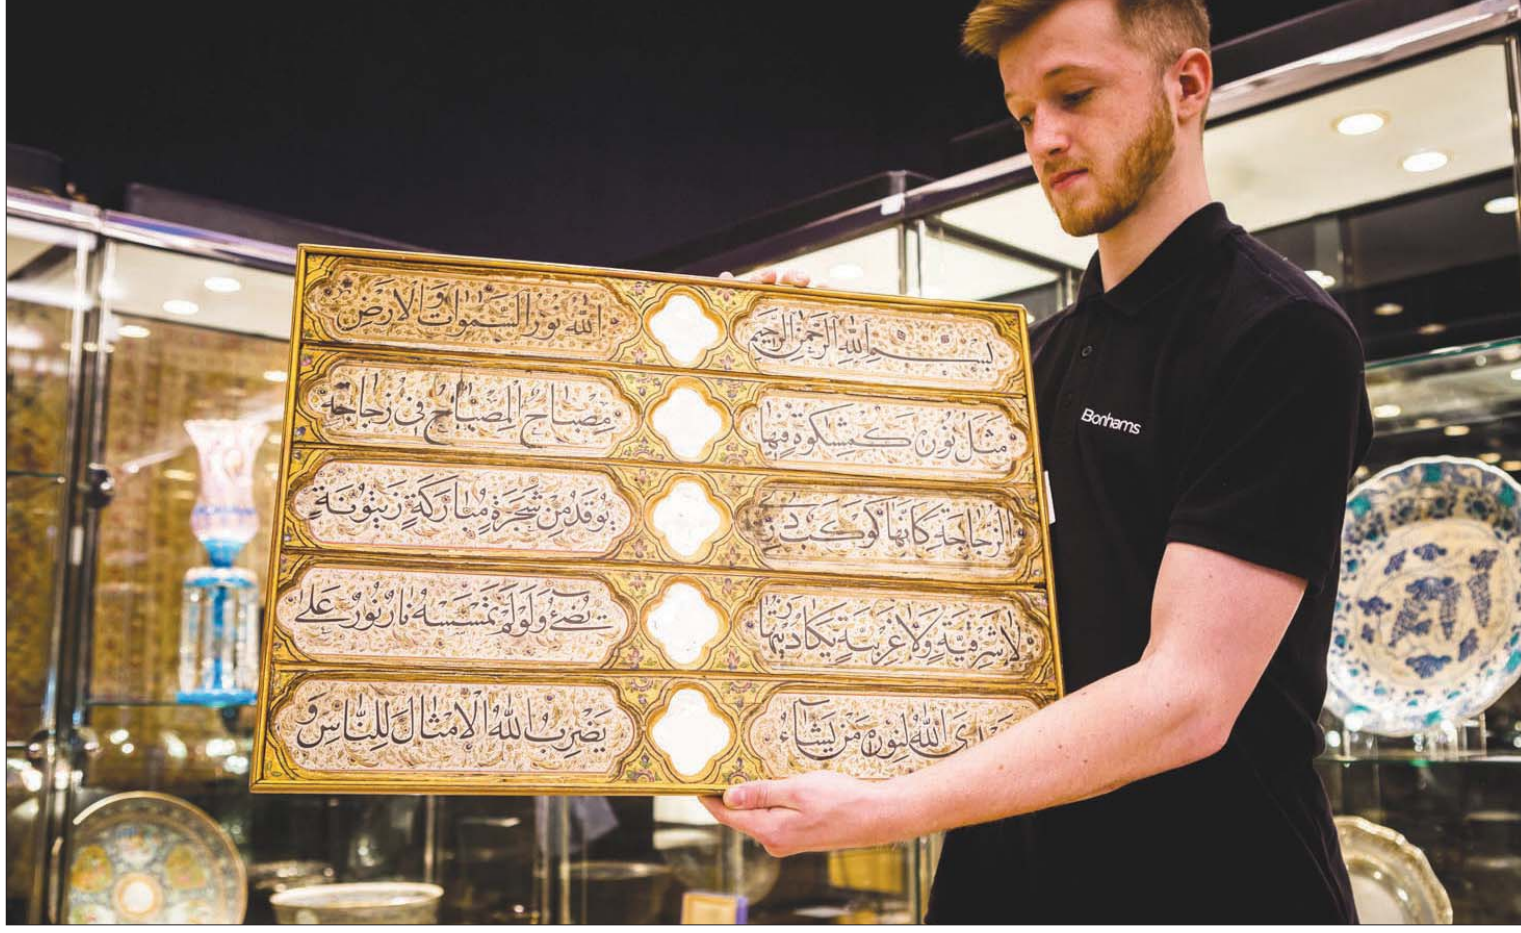 بسم الله الرحمن الرحيم
الله نور السموات والارض
مثل نوره كمشكوة فيها
مصباح المصباح في زجاجة
الزجاجة كانها كوكب دري
يوقد من شجرة مباركة زيتونة
لا شرقية ولا غربية يكاد زيتها
يضئ ولو لم تمسسه نار نور على
الله لنوره من يشاء
يضرب الله الامثال للناس و
Bonhams